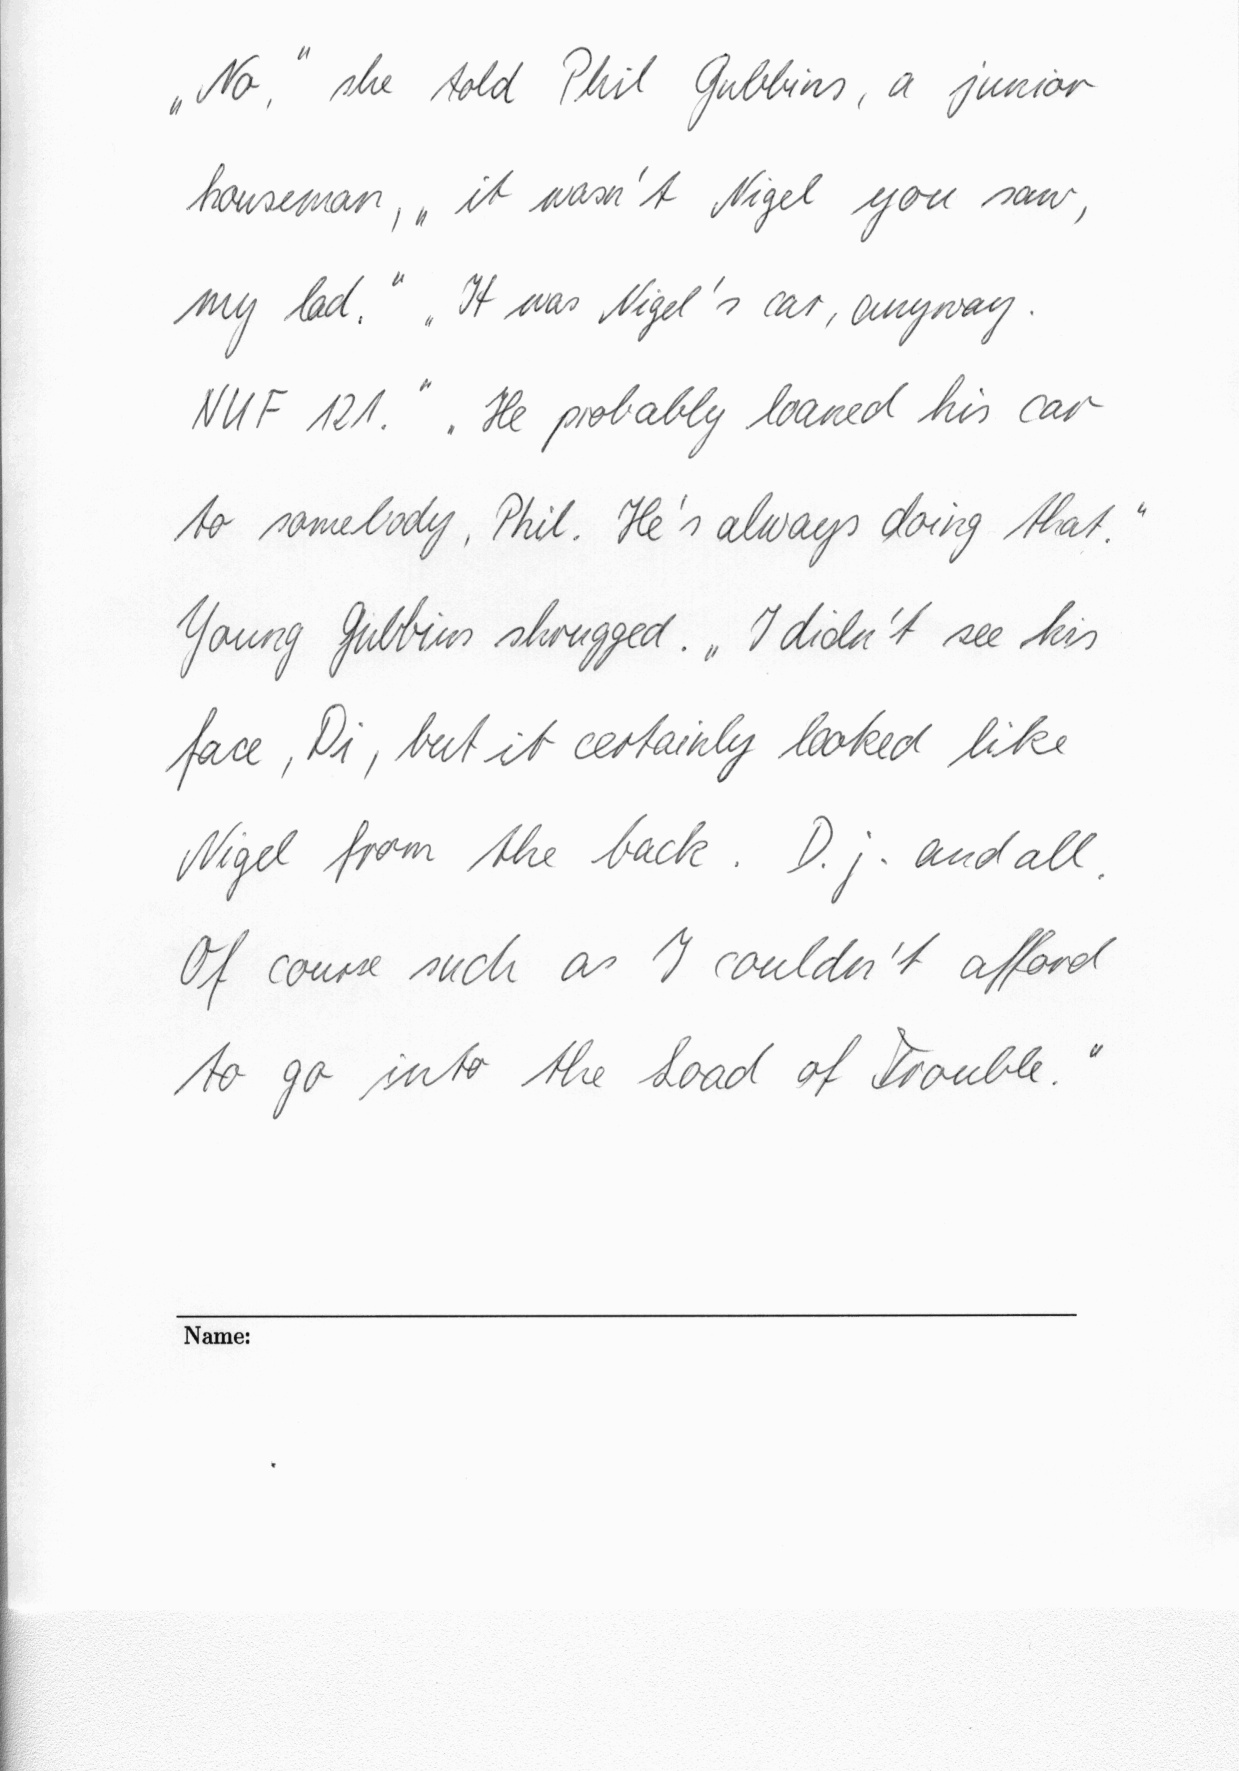 „No,“ she told Phil Gubbins, a junior
houseman, „it wasn't Nigel you saw,
my lad.“ „It was Nigel's car, anyway.
NUF 121.“ „He probably loaned his car
to somebody, Phil. He's always doing that.“
Young Gubbins shrugged. „I didn't see his
face, Di, but it certainly looked like
Nigel from the back. D. j. and all.
Of course such as I couldn't afford
to go into the Load of Trouble.“
Name: